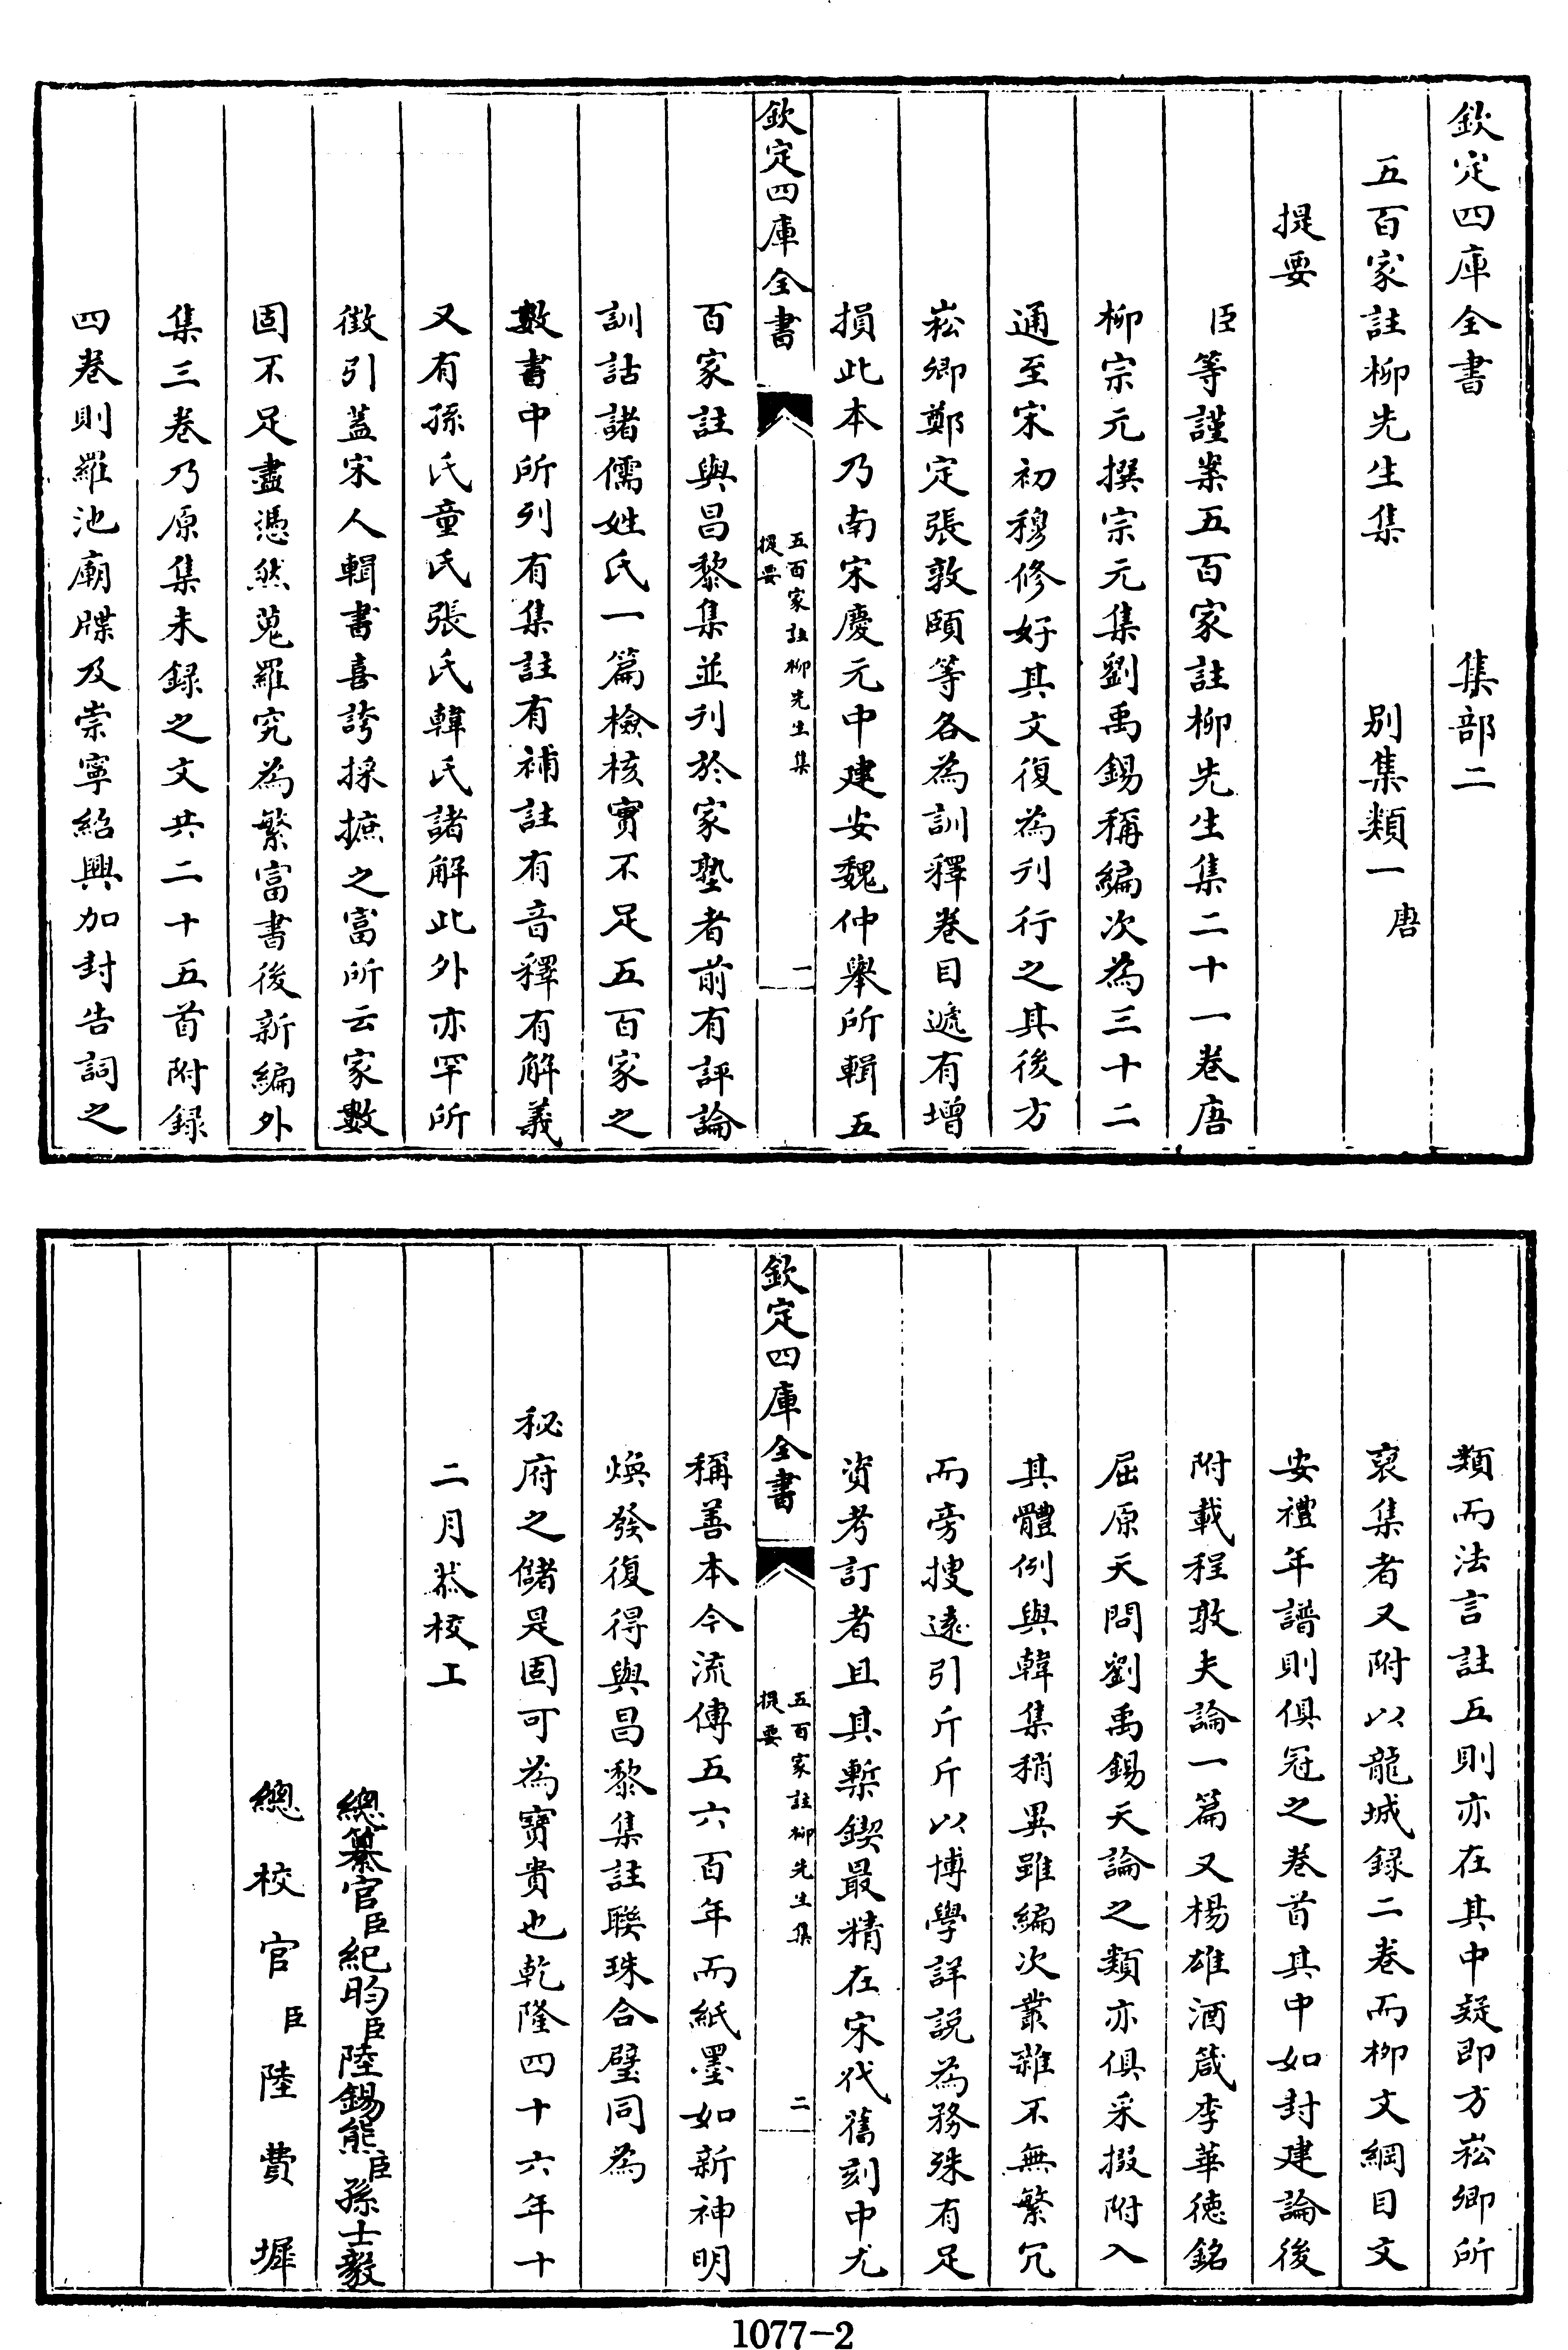 欽定四庫全書　集部二
五百家註柳先生集　別集類一唐
提要
臣等謹案五百家註柳先生集二十一卷唐
柳宗元撰宗元集劉禹錫稱編次為三十二
通至宋初穆修好其文復為刋行之其後方
崧卿鄭定張敦頤等各為訓釋卷目遞有增
損此本乃南宋慶元中建安魏仲舉所輯五
欽定四庫全書
五百家註柳先生集
提要
一
百家註與昌黎集並刋於家塾者前有評論
訓詁諸儒姓氏一篇檢核實不足五百家之
數書中所列有集註有補註有音釋有解義
又有孫氏童氏張氏韓氏諸解此外亦罕所
徴引蓋宋人輯書喜誇採摭之富所云家數
固不足盡憑然蒐羅究為繁富書後新編外
集三卷乃原集未録之文共二十五首附録
四卷則羅池廟牒及崇寧紹興加封告詞之
類而法言註五則亦在其中疑即方崧卿所
裒集者又附以龍城録二卷而柳文綱目文
安禮年譜則俱冠之卷首其中如封建論後
附載程敦夫論一篇又楊雄酒箴李華徳銘
屈原天問劉禹錫天論之類亦俱采掇附入
其體例與韓集稍異雖編次叢雜不無繁冗
而旁搜遠引斤斤以博學詳説為務殊有足
資考訂者且其槧鍥最精在宋代舊刻中尤
欽定四庫全書
五百家註柳先生集
提要
二
稱善本今流傳五六百年而紙墨如新神明
煥發復得與昌黎集註聯珠合璧同為
秘府之儲是固可為寶貴也乾隆四十六年十
二月恭校上
總纂官臣紀昀臣陸錫熊臣孫士毅
總校官臣陸費墀
1077-2